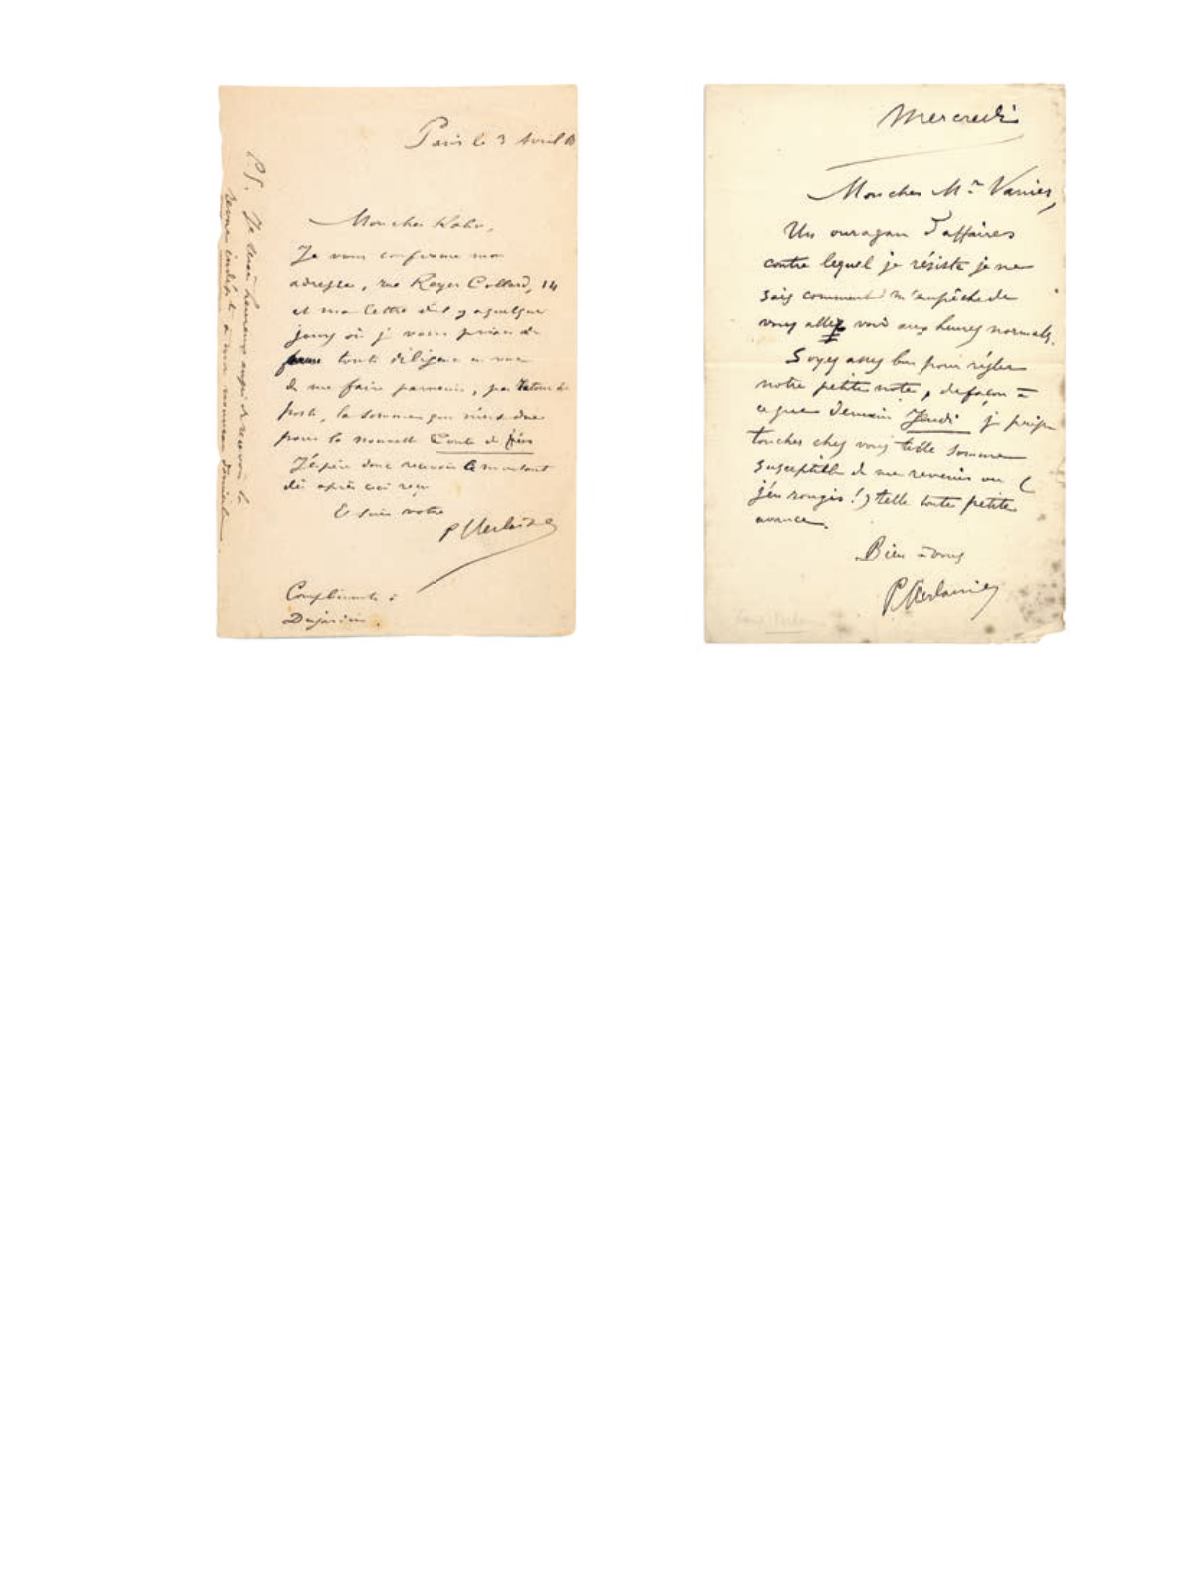 Paris le 3 Avril
Mon cher Kahn,
Je vous confirme mon
adresse, rue Royer Collard, 14
et ma lettre d'il y a quelques
jours où je vous priais de
faire toute diligence en vue
de me faire parvenir, par retour de
poste, la somme qui m'est due
pour la nouvelle Conte de fées
J'espère donc recevoir le montant
dès après ceci reçu
Et suis votre
P Verlaine
Compliments à
Dujardin.
P.S. Je serais heureux aussi de recevoir la
revue indépte à mon nouveau domicile.
Mercredi
Mon cher Mr Vanier,
Un ouragan d'affaires
contre lequel je résiste je ne
sais comment m'empêche de
vous aller voir aux heures normales.
Soyez assez bon pour régler
notre petite note, de façon à
ce que demain Jeudi je puisse
toucher chez vous telle somme
susceptible de me revenir ou (
j'en rougis !) telle toute petite
avance.
Bien à vous
P. Verlaine